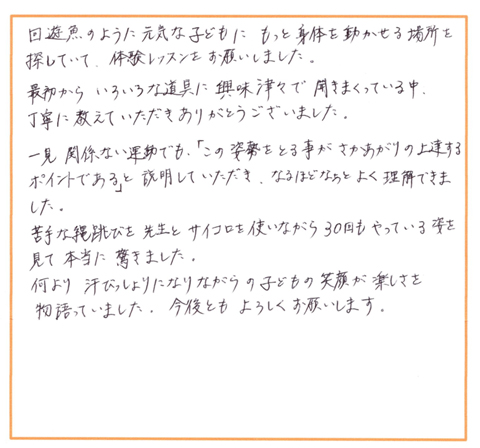 回遊魚のように元気な子どもに もっと身体を動かせる場所を
探していて、体験レッスンをお願いしました。
最初から いろいろな道具に興味津々で 聞きまくっている中、
丁寧に教えていただきありがとうございました。
一見 関係ない運動でも、「この姿勢をとる事が さかあがりの上達する
ポイントである」と 説明していただき、なるほどなぁと よく理解できま
した。
苦手な縄跳びを 先生と サイコロを使いながら 30回も やっている 姿を
見て 本当に 驚きました。
何より 汗びっしょりになりながらの子どもの笑顔が 楽しさを
物語っていました。今後とも よろしくお願いします。